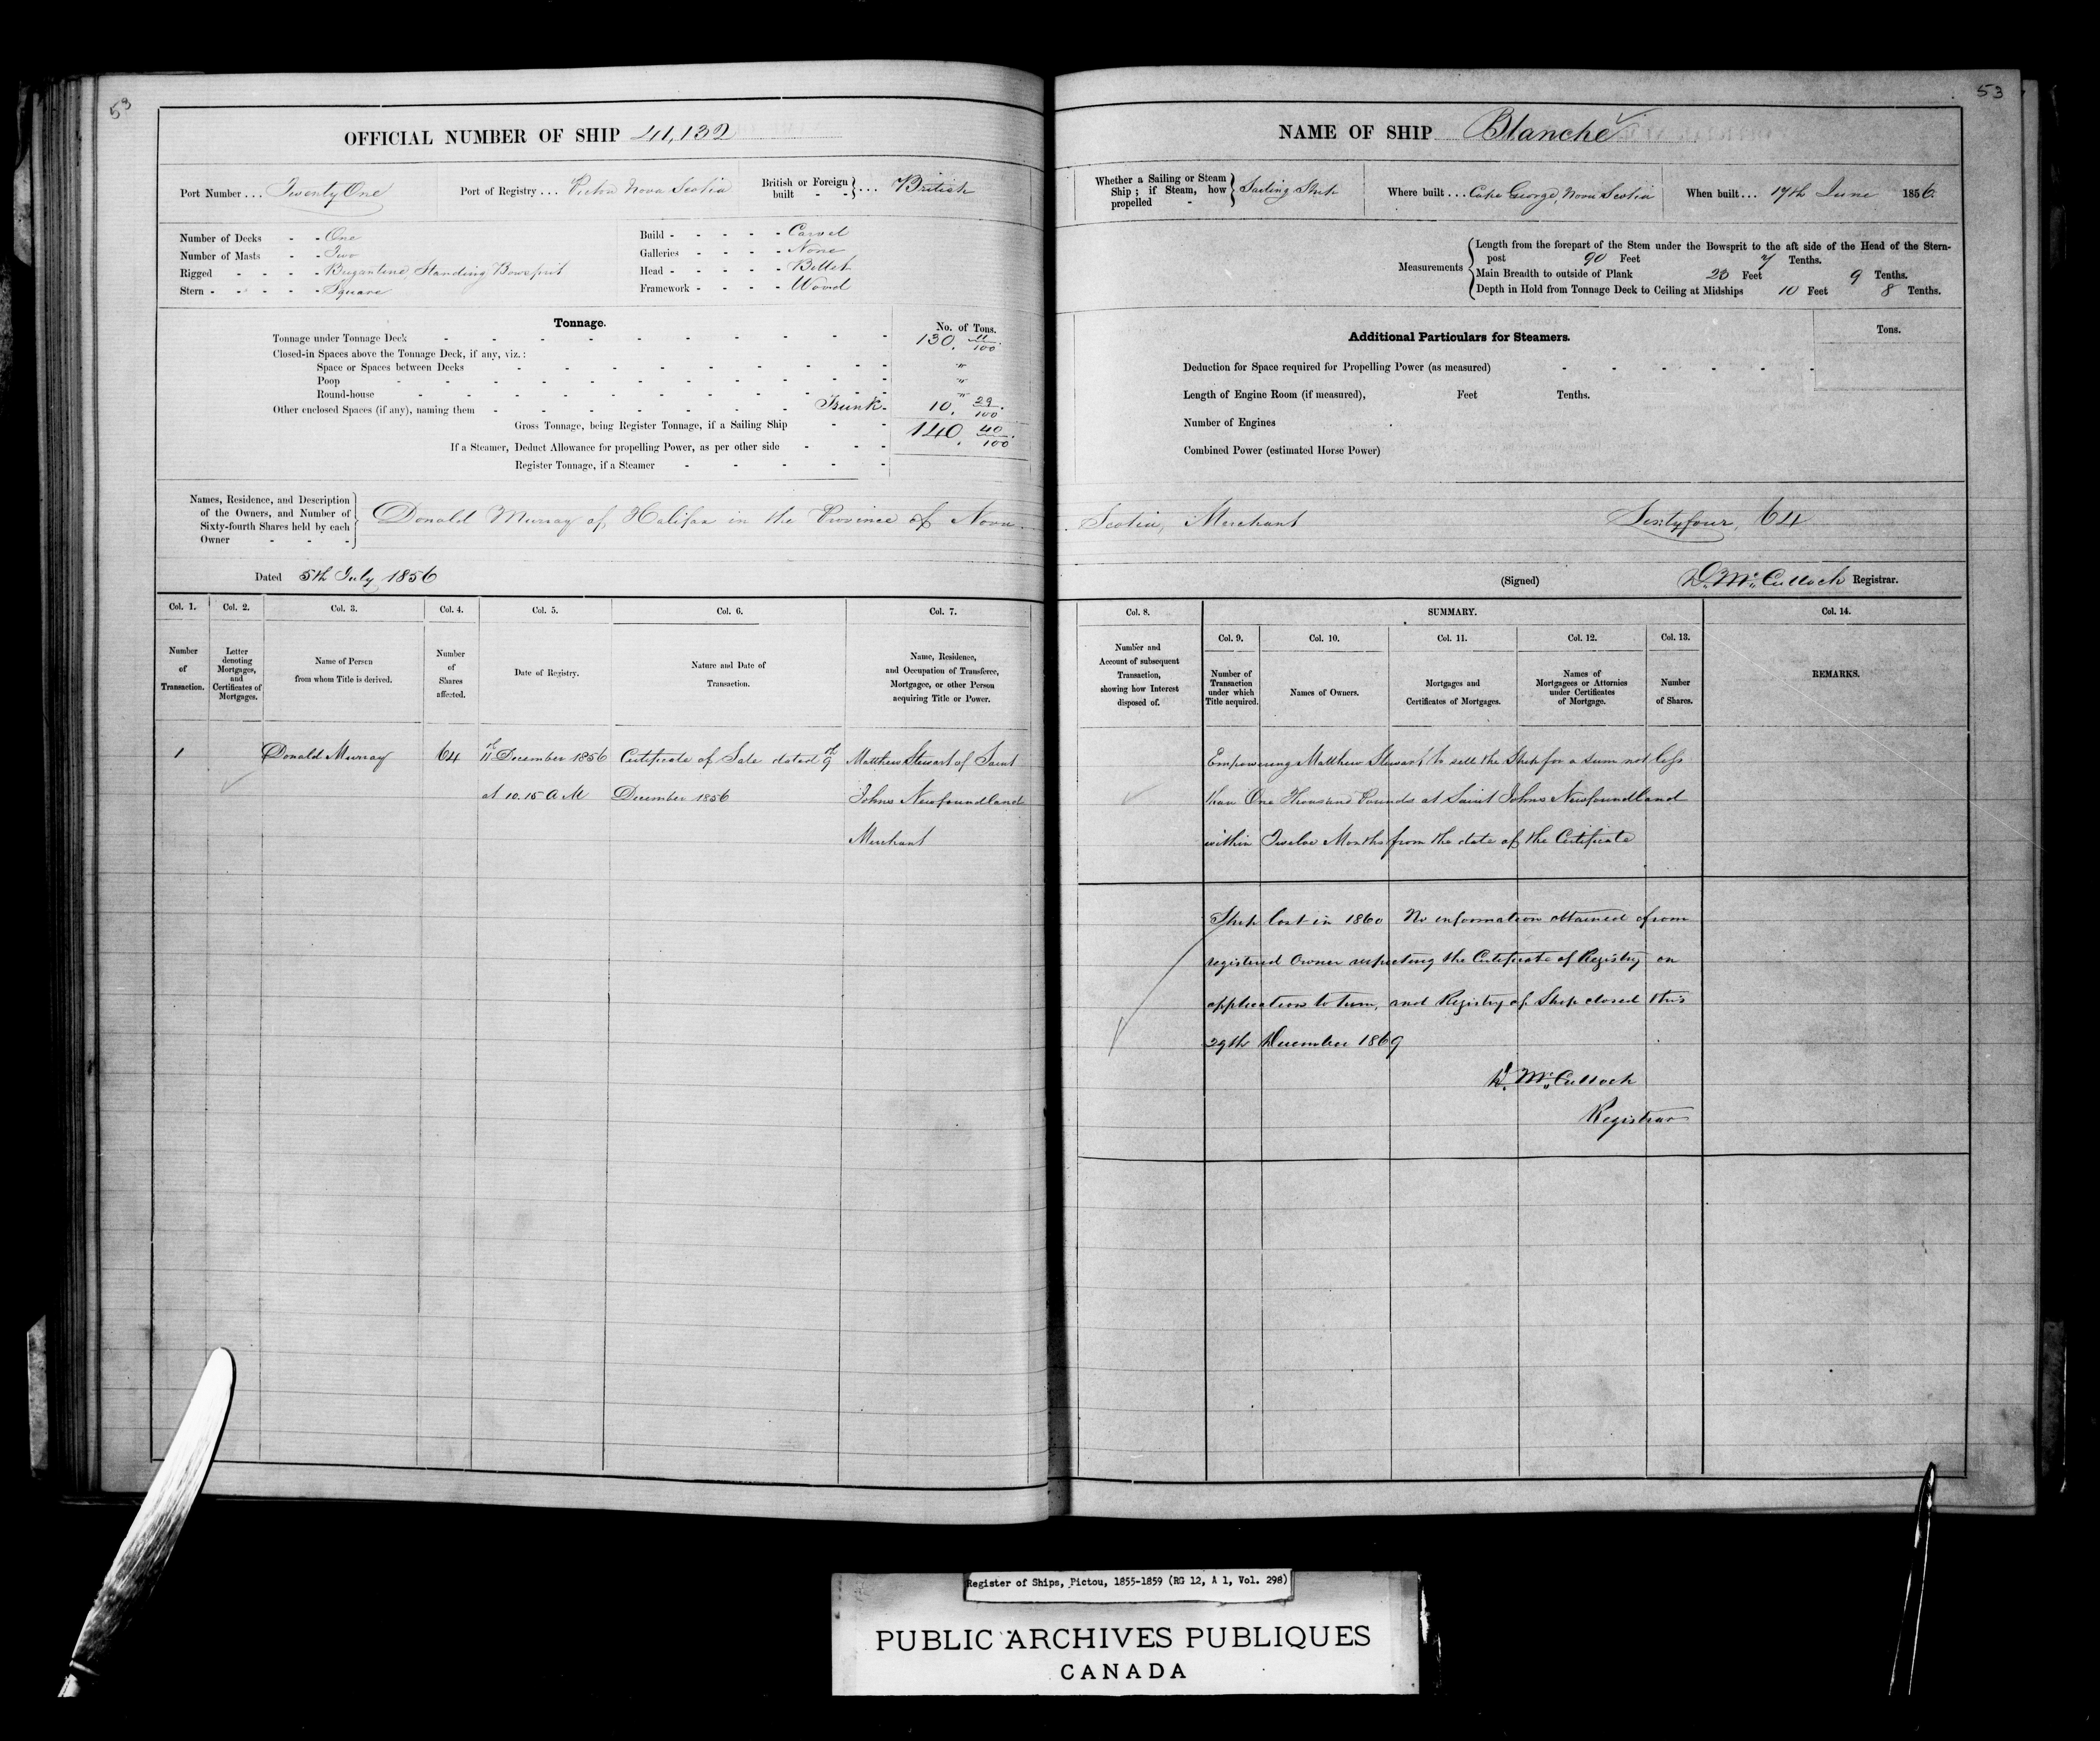 53
OFFICIAL NUMBER OF SHIP 41,132
Port Number ... Twenty One
Port of Registry ... Pictou Nova Scotia
British or Foreign built - - } ... British
Number of Decks - - One
Number of Masts - - Two
Rigged - - - - Brigantine Standing Bowsprit
Stern - - - - - Square
Build - - - - - Carvel
Galleries - - - - None
Head - - - - - Billet
Framework - - - - Wood
Tonnage.
No. of Tons.
Tonnage under Tonnage Deck 130. 11/100
Closed-in Spaces above the Tonnage Deck, if any, viz.:
Space or Spaces between Decks "
Poop "
Round-house "
Other enclosed Spaces (if any), naming them Trunk. 10. 29/100
Gross Tonnage, being Register Tonnage, if a Sailing Ship 140. 40/100
If a Steamer, Deduct Allowance for propelling Power, as per other side
Register Tonnage, if a Steamer
Names, Residence, and Description
of the Owners, and Number of
Sixty-fourth Shares held by each
Owner
Donald Murray of Halifax in the Province of Nova
Dated 5th July 1856
Col. 1. Col. 2. Col. 3. Col. 4. Col. 5. Col. 6. Col. 7.
Number of Transaction.
Letter denoting Mortgages, and Certificates of Mortgages.
Name of Person from whom Title is derived.
Number of Shares affected.
Date of Registry.
Nature and Date of Transaction.
Name, Residence, and Occupation of Transferee, Mortgagee, or other Person acquiring Title or Power.
1 Donald Murray 64 11th December 1856 Certificate of Sale dated 9th Matthew Stewart of Saint
at 10.15 A M December 1856 Johns Newfoundland
Merchant
53
NAME OF SHIP Blanche
Whether a Sailing or Steam Ship; if Steam, how propelled - } Sailing Ship
Where built ... Cape George, Nova Scotia
When built ... 17th June 1856.
Measurements
Length from the forepart of the Stem under the Bowsprit to the aft side of the Head of the Stern-
post 90 Feet 7 Tenths.
Main Breadth to outside of Plank 23 Feet 9 Tenths.
Depth in Hold from Tonnage Deck to Ceiling at Midships 10 Feet 8 Tenths.
Additional Particulars for Steamers.
Tons.
Deduction for Space required for Propelling Power (as measured)
Length of Engine Room (if measured), Feet Tenths.
Number of Engines
Combined Power (estimated Horse Power)
Scotia, Merchant Sixtyfour, 64
(Signed) D. McCulloch Registrar.
Col. 8. SUMMARY. Col. 14.
Col. 9. Col. 10. Col. 11. Col. 12. Col. 13.
Number and Account of subsequent Transaction, showing how Interest disposed of.
Number of Transaction under which Title acquired.
Names of Owners.
Mortgages and Certificates of Mortgages.
Names of Mortgagees or Attornies under Certificates of Mortgage.
Number of Shares.
REMARKS.
Empowering Matthew Stewart to sell the Ship for a sum not less
than One Thousand Pounds at Saint Johns Newfoundland
within Twelve Months from the date of the Certificate
Ship lost in 1860 No information obtained from
registered Owner respecting the Certificate of Registry on
application to him, and Registry of Ship closed this
29th December 1869
D. McCulloch
Registrar
Register of Ships, Pictou, 1855-1859 (RG 12, A 1, Vol. 298)
PUBLIC ARCHIVES PUBLIQUES
CANADA